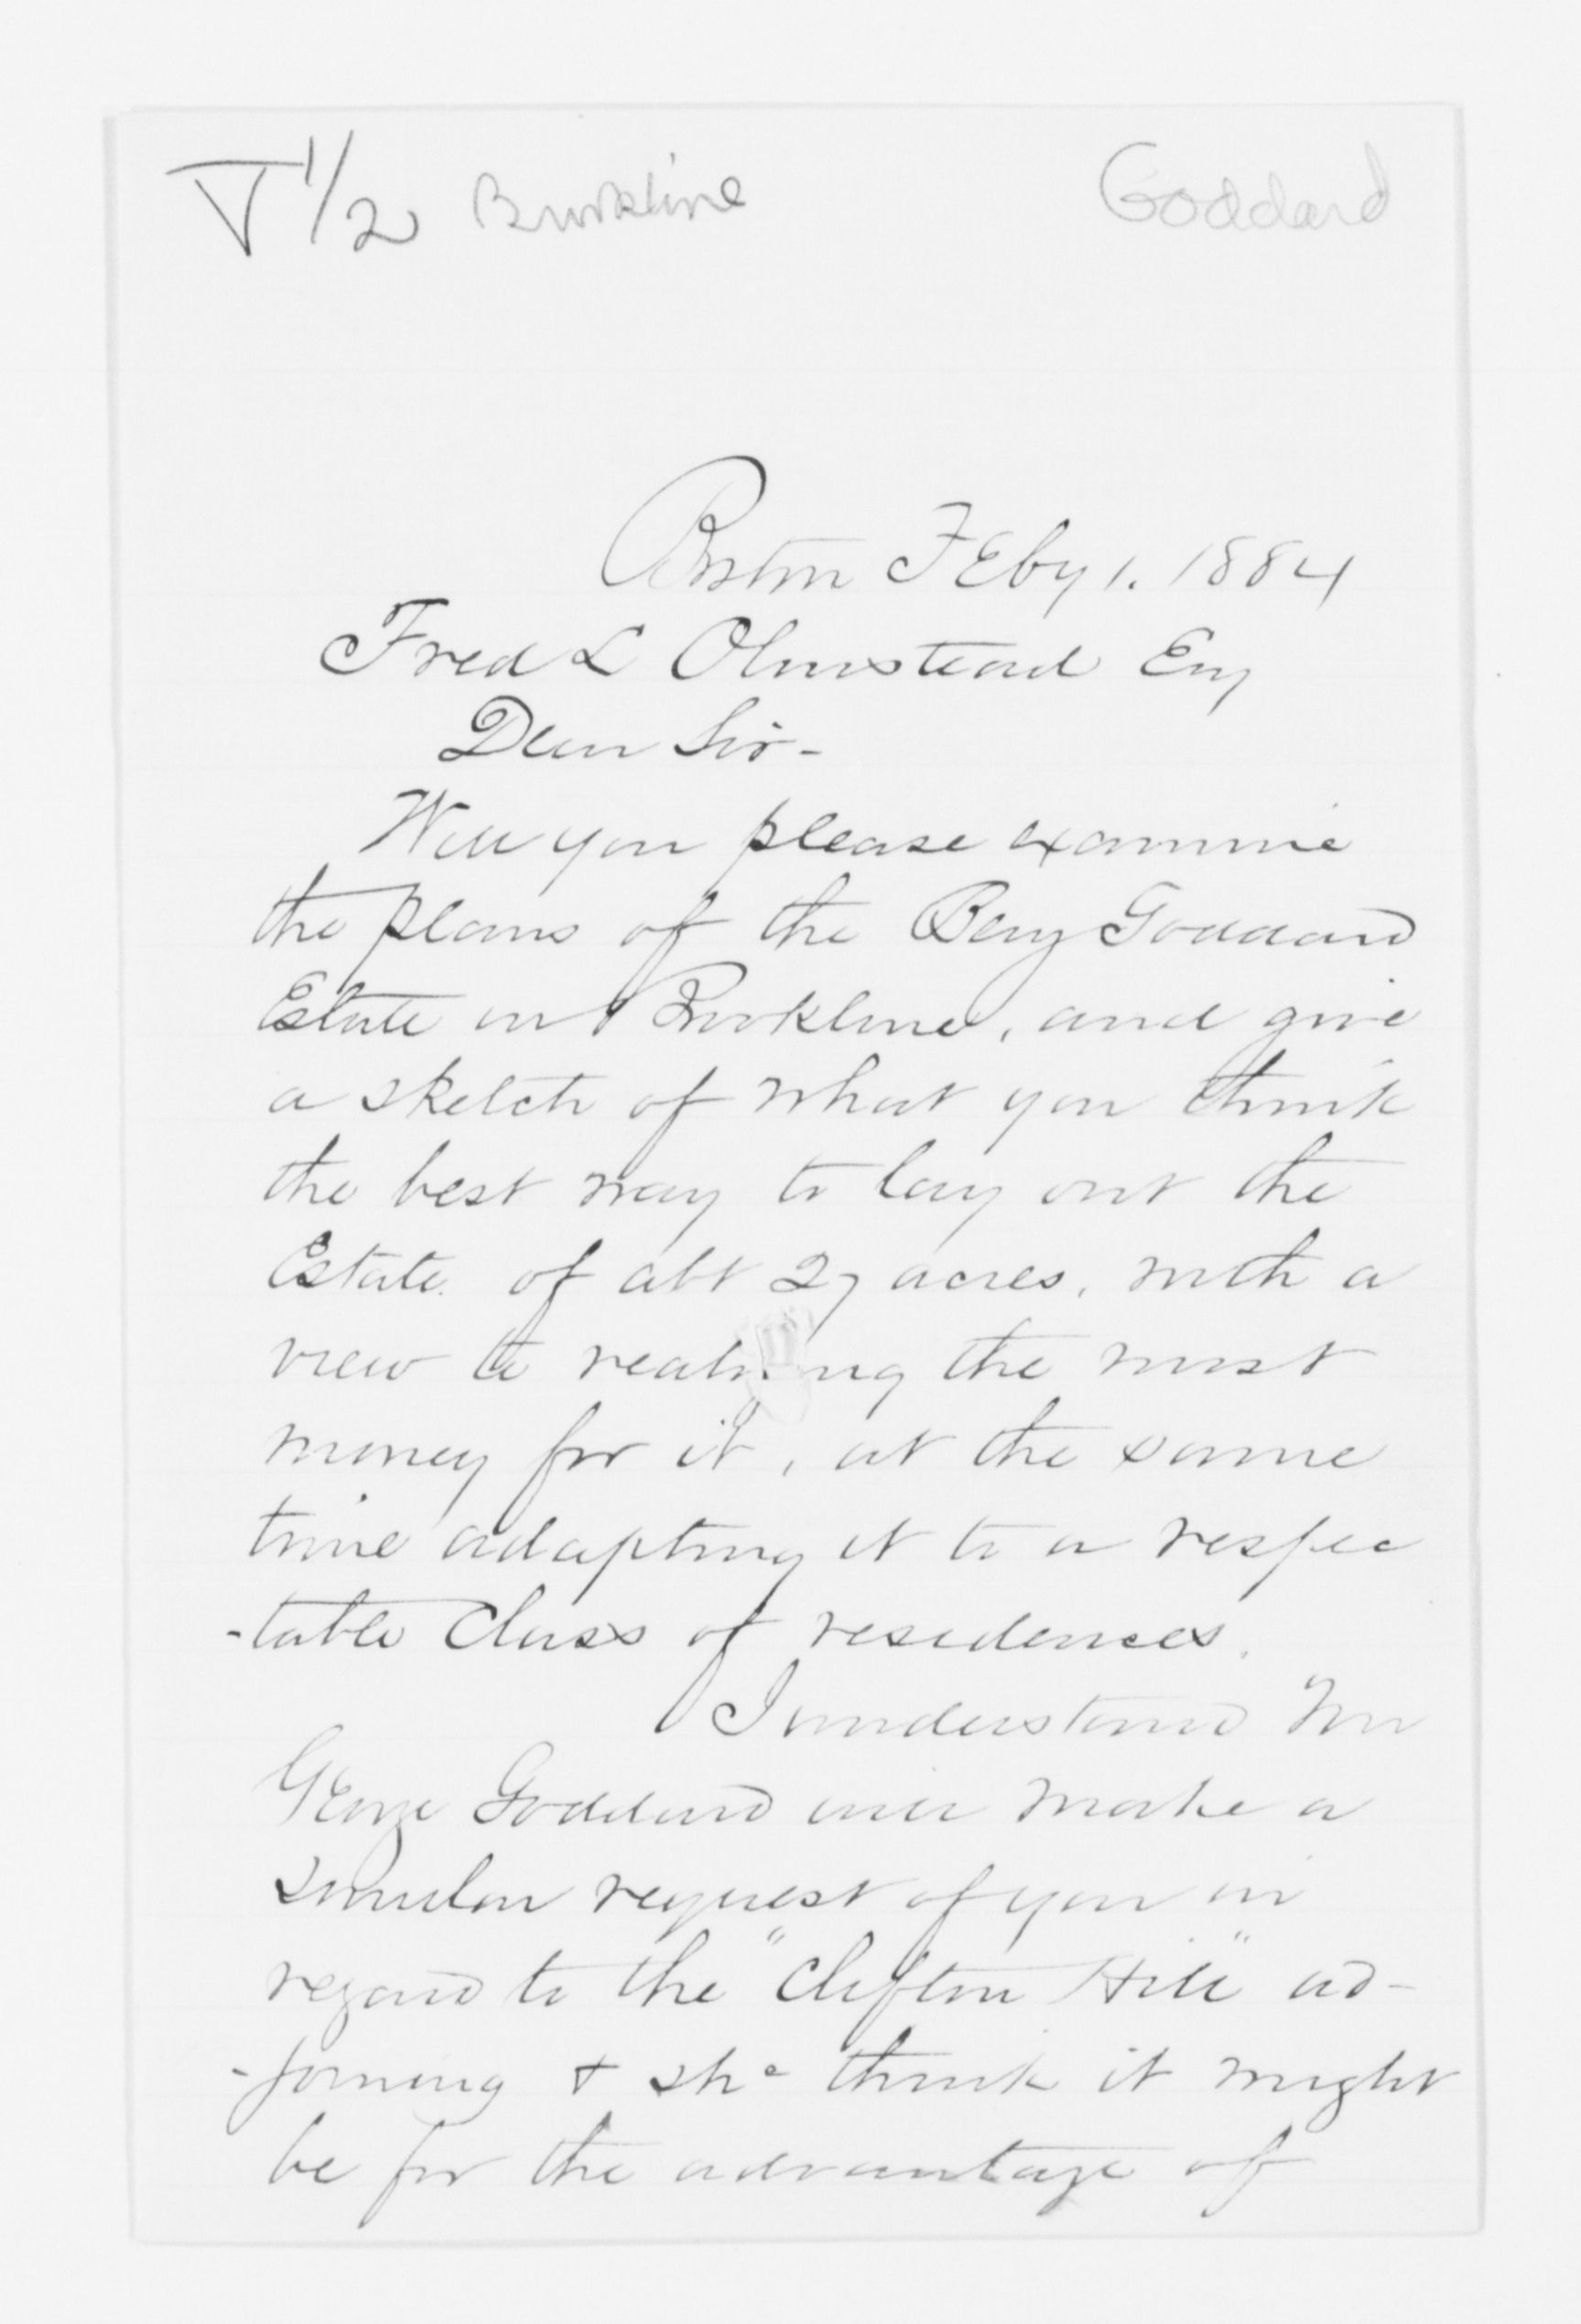 T 1/2 Brookline Goddard
Boston FEby 1. 1884
Fred L Olmstead Esq
Dear Sir -
Will you please examine
the plans of the Benj Goddard
Estate in Brookline, and give
a sketch of what you think
the best way to lay out the
Estate. of abt 27 acres, with a
view to the most
money for it, at the same
time adapting it to a respec
-table Class of residences.
I understand Mr
George Goddard will make a
similar request of you in
regard to the "Clifton Hill" ad-
-joining & shd think it might
be for the advantage of